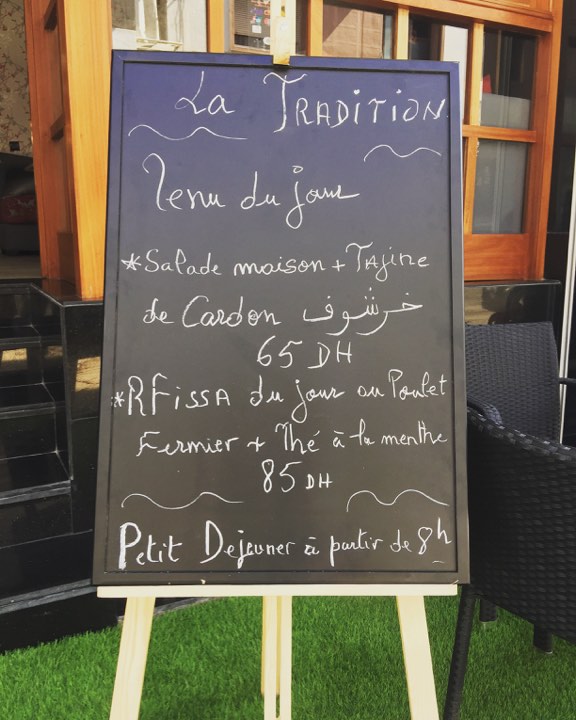 La TRADITION
Menu du jour
*Salade maison + Tajine
de Cardon خرشوف
65 DH
*RFissA du jour au Poulet
Fermier + Thé à la menthe
85 DH
Petit Dejeuner à partir de 8h